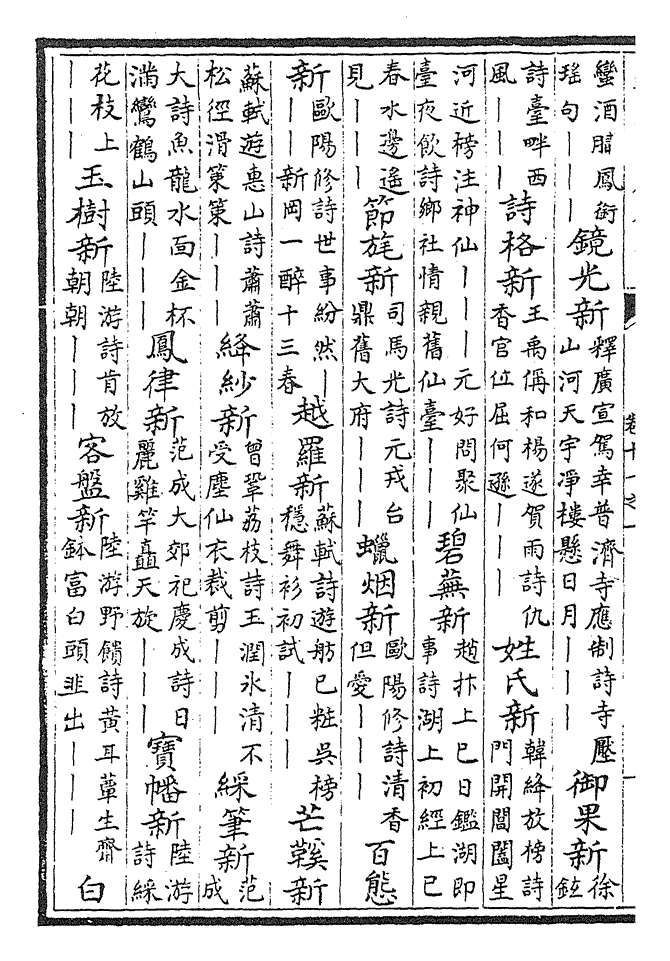 蠻酒䐉鳳銜瑤句｜｜｜鏡光新釋廣宣駕幸普濟寺應制詩寺壓山河天宇凈樓懸日月｜｜｜御果新徐鉉
詩臺畔西風｜｜｜詩格新王禹偁和楊遂賀雨詩仇香官位屈何遜｜｜｜姓氏新韓絳放榜詩門開閶闔星
河近榜注神仙｜｜｜元好問聚仙臺夜飲詩鄉社情親舊仙臺｜｜｜碧蕪新趙抃上巳日鑑湖即事詩湖上初經上巳
春水邊遙見｜｜｜節旄新司馬光詩元戎台鼎舊大府｜｜｜蠟烟新歐陽修詩清香但愛｜｜｜百態
新歐陽修詩世事紛然｜｜｜新岡一醉十三春越羅新蘇軾詩遊舫已粧吳榜穩舞衫初試｜｜｜芒鞵新
蘇軾遊惠山詩蕭蕭松徑滑策策｜｜｜絳紗新曾鞏荔枝詩玉潤氷清不受塵仙衣裁剪｜｜｜綵筆新范成
大詩魚龍水面金杯滿鸞鶴山頭｜｜｜鳳律新范成大郊祀慶成詩日麗雞竿矗天旋｜｜｜寶幡新陸游詩綵
花枝上｜｜｜玉樹新陸游詩肯放朝朝｜｜｜客盤新陸游野饋詩黃耳蕈生齊鉢富白頭韭出｜｜｜白